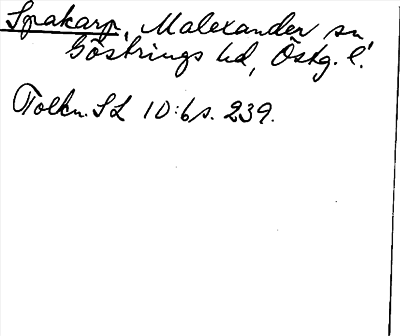 Spakarp, Malexander sn
Göstrings hd, Östg. l.
Tolkn. SL 10:b s. 239.